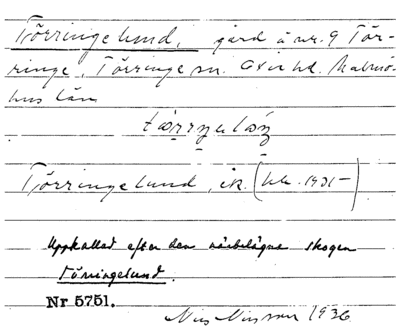 Törringelund, gård å nr. 9 Tör-
ringe, Törringe sn. Oxie hd. Malmö-
hus län
Törringelund, ek. (hk. 1931-)
Uppkallad efter den närbelägna skogen
Törringelund.
Nr 5751.
Nils Nilsson 1936